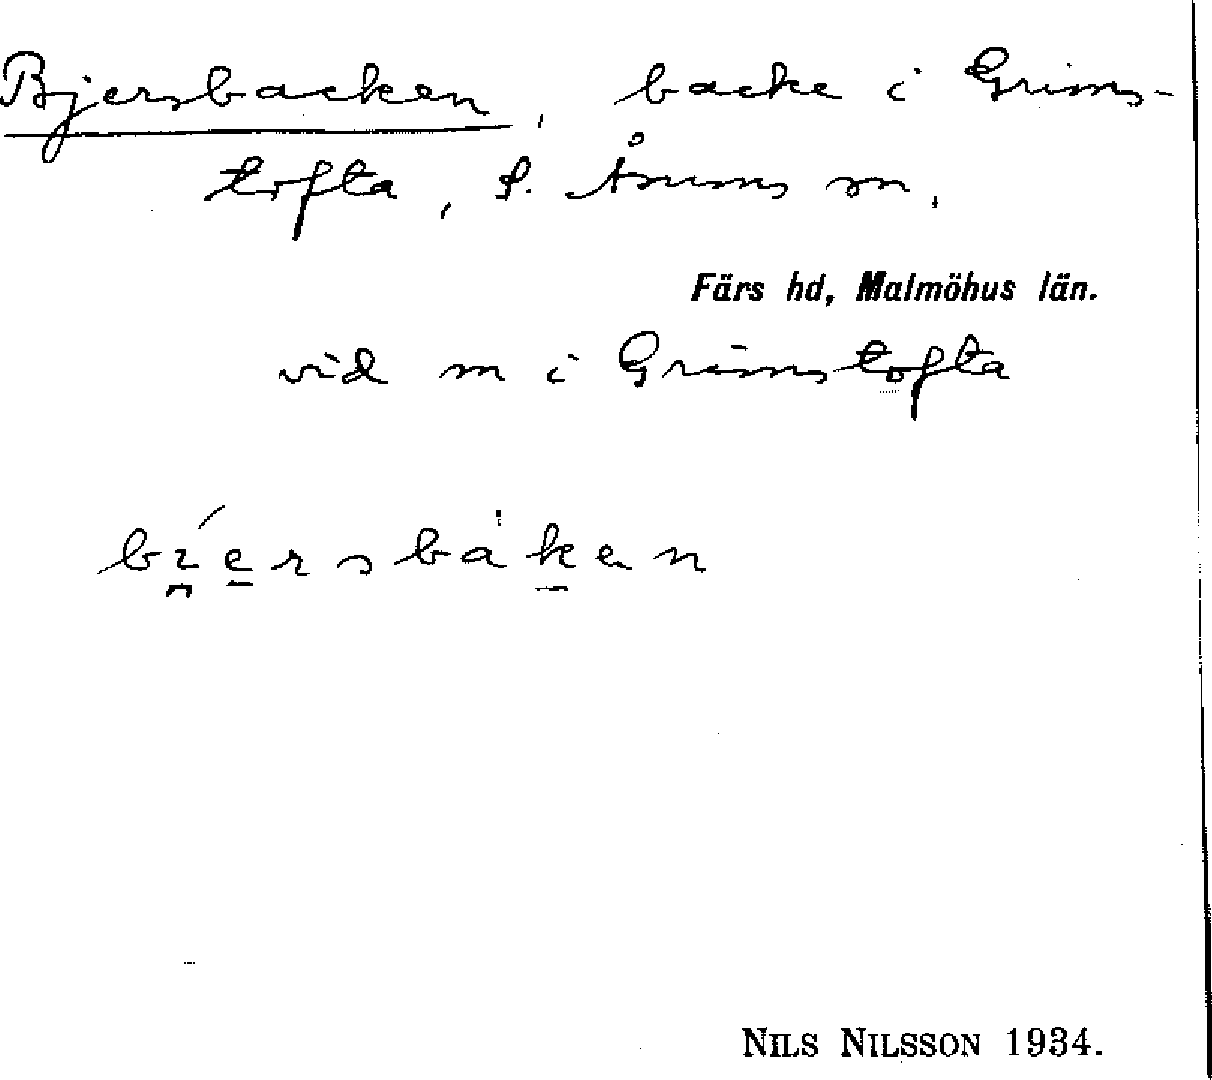 Bjersbacken, backe i Grims-
tofta, S. Åsums sn.
Färs hd, Malmöhus län.
vid sn i Grimstofta
bɪersbaken
NILS NILSSON 1934.